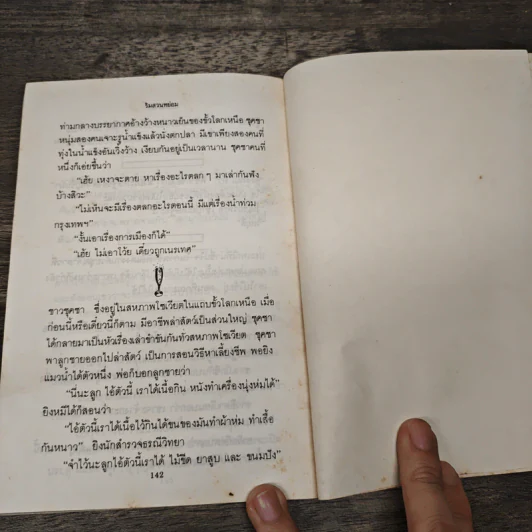 ริมสวนหย่อม
ท่ามกลางบรรยากาศอ้างว้างหนาวเย็นของขั้วโลกเหนือ ชุคชา
หนุ่มสองคนเจาะรูน้ำแข็งแล้วนั่งตกปลา มีเขาเพียงสองคนที่
ทุ่งในน้ำแข็งอันเวิ้งว้าง เงียบกันอยู่เป็นเวลานาน ชุคชาคนที่
หนึ่งก็เอ่ยขึ้นว่า
"เฮ้ย เหงาจะตาย หาเรื่องอะไรตลก ๆ มาเล่ากันฟัง
บ้างสิวะ"
"ไม่เห็นจะมีเรื่องตลกอะไรตอนนี้ มีแต่เรื่องน้ำท่วม
กรุงเทพฯ"
"งั้นเอาเรื่องการเมืองก็ได้"
"เฮ้ย ไม่เอาโว้ย เดี๋ยวถูกเนรเทศ"
ชาวชุคชา ซึ่งอยู่ในสหภาพโซเวียตในแถบขั้วโลกเหนือ เมื่อ
ก่อนนี้หรือเดี๋ยวนี้ก็ตาม มีอาชีพล่าสัตว์เป็นส่วนใหญ่ ชุคชา
ได้กลายมาเป็นหัวเรื่องเล่าขำขันกันทั่วสหภาพโซเวียต ชุคชา
พาลูกชายออกไปล่าสัตว์ เป็นการสอนวิธีหาเลี้ยงชีพ พอยิง
แมวน้ำได้ตัวหนึ่ง พ่อก็บอกลูกชายว่า
"นี่นะลูก ไอ้ตัวนี้ เราได้เนื้อกิน หนังทำเครื่องนุ่งห่มได้"
ยิงหมีได้ก็สอนว่า
"ไอ้ตัวนี้เราได้เนื้อไว้กินได้ขนของมันทำผ้าห่ม ทำเสื้อ
กันหนาว" ยิงนักสำรวจธรณีวิทยา
"จำไว้นะลูกไอ้ตัวนี้เราได้ ไม้ขีด ยาสูบ และ ขนมปัง"
142